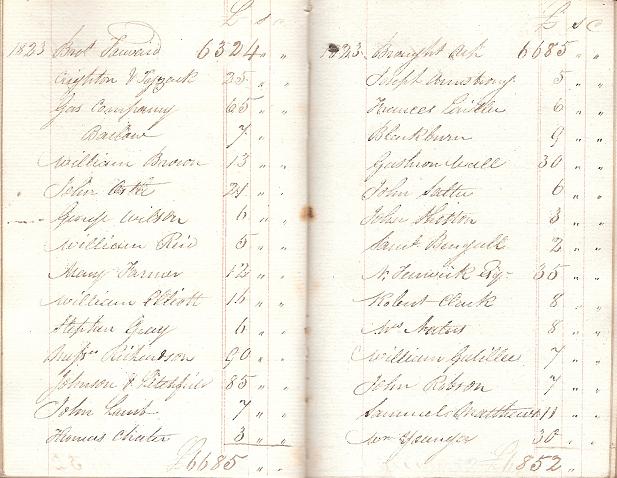 £ s
1823 Brot Forward 6324 " "
Crighton & 25 " "
Gas Company 65 " "
Barlow 7 " "
William Brown 13 " "
John 21 " "
George Wilson 6 " "
William Reid 5 " "
Mary Farmer 12 " "
William Elliott 16 " "
Stephen Gray 6 " "
Messrs Richardson 90 " "
Johnson & 85 " "
John Lamb 7 " "
Thomas Charter 3 " "
£6685 " "
£ s
1823 Brought up 6685 " "
Joseph Armstrong 5 " "
Frances 6 " "
Blackburn 9 " "
Wall 30 " "
John 6 " "
John 3 " "
Saml 2 " "
N. Fenwick Esq 35 " "
Robert Clark 8 " "
Wm 8 " "
William Galilee 7 " "
John Robson 7 " "
Samuel Matthews 11 " "
Wm Younger 30 " "
£6852 " "